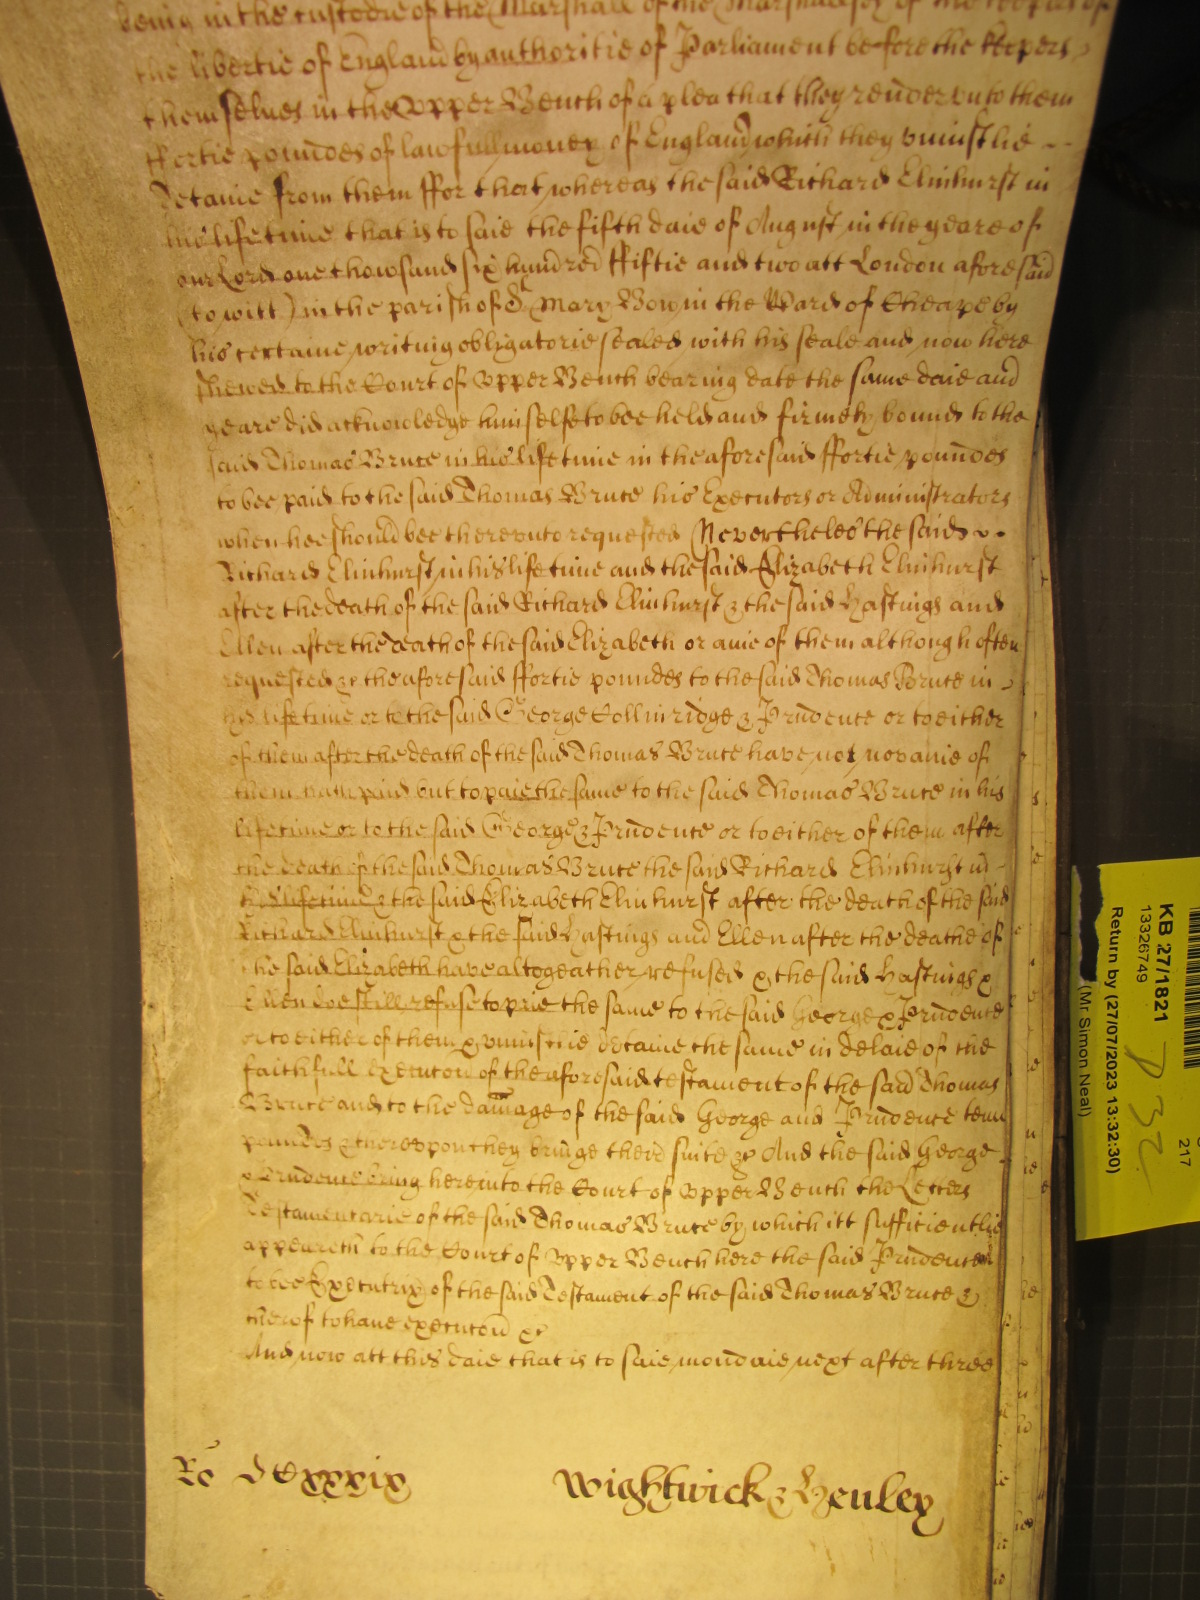 being in the custodie of the Marshall of the Marshalsey of the keepers of
the libertie of England by authoritie of Parliament before the keepers
themselves in the Vpper Bench of a plea that they render vnto them
ffortie poundes of lawfull money of England which they vniustlie
Detaine from them ffor that whereas the said Richard Elmhurst in
his life time that is to saie the fifth daie of August in the yeare of
our Lord one thowsand six hundred ffiftie and two att London aforesaid
(to witt) in the parish of St Mary Bow in the Ward of Cheape by
his certaine writing obligatorie sealed with his seale and now here
shewed to the Court of Vpper Bench bearing date the same daie and
yeare did acknowledge himselfe to bee held and firmely bound to the
said Thomas Bruce in his life time in the aforesaid ffortie poundes
to bee paid to the said Thomas Bruce his Executors or Administrators
when hee should bee therevnto requested Neverthelès the said
Richard Elmhurst in his life time and the said Elizabeth Elmhurst
after the death of the said Richard Elmhurst & the said Hastings and
Ellen after the death of the said Elizabeth or anie of them although often
requested &c the aforesaid ffortie poundes to the said Thomas Bruce in
his life time or to the said George Collinridge & Prudence or to either
of them after the death of the said Thomas Bruce have not nor anie of
them hath paid but to paie the same to the said Thomas Bruce in his
life time or to the said George & Prudence or to either of them after
the death of the said Thomas Bruce the said Richard Elmhurst in
his life time & the said Elizabeth Elmhurst after the death of the said
Richard Elmhurst & the said Hastings and Ellen after the deathe of
the said Elizabeth have altogeather refused & the said Hastings &
Ellen doe still refuse to paie the same to the said George & Prudence
or to either of them & vniustlie detaine the same in delaie of the
faithfull execucon of the aforesaid testament of the said Thomas
Bruce and to the damage of the said George and Prudence tenn
poundes & therevpon they bringe their suite &c And the said George
& Prudence bring here into the Court of Vpper Bench the Letters
Testamentarie of the said Thomas Bruce by which itt sufficientlie
appeareth to the Court of Vpper Bench here the said Prudence
to bee Executrix of the said Testament of the said Thomas Bruce &
therof to have execucon &c
And now att this daie that is to saie mondaie next after three
Ro DCxxxix Wightwick & Henley
KB 27/1821
13326749
Return by (27/07/2023 13:32:30)
(Mr Simon Neal)
217